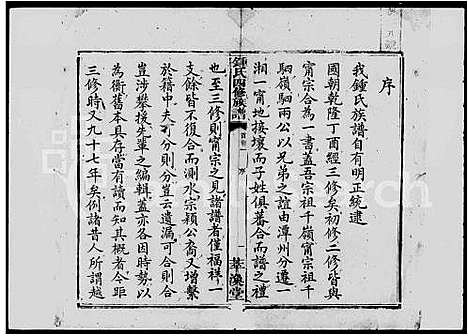 序
我鍾氏族譜自有明正統逮
國朝乾隆丁酉經三修矣初修二修皆與
甯宗合為一書蓋吾宗祖千嶺甯宗祖千
駟嶺駟兩公以兄弟之誼由潭州分遷一
湘一甯地接壤而子姓俱蕃合而譜之禮
鍾氏四修族譜
序
萃渙堂
也至三修則甯宗之見諸譜者僅福祥一
支餘皆不復合而測水宗穎公裔又增繫
於籍中夫可分則分豈云遺漏可合則合
豈涉攀援先輩之編輯蓋亦各因時勢以
為衡舊本具存當有讀而知其概者今距
三修時又九十七年矣例諸昔人所謂越